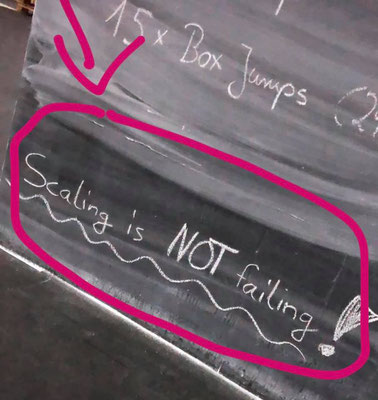 15 x Box Jumps
Scaling is NOT failing!